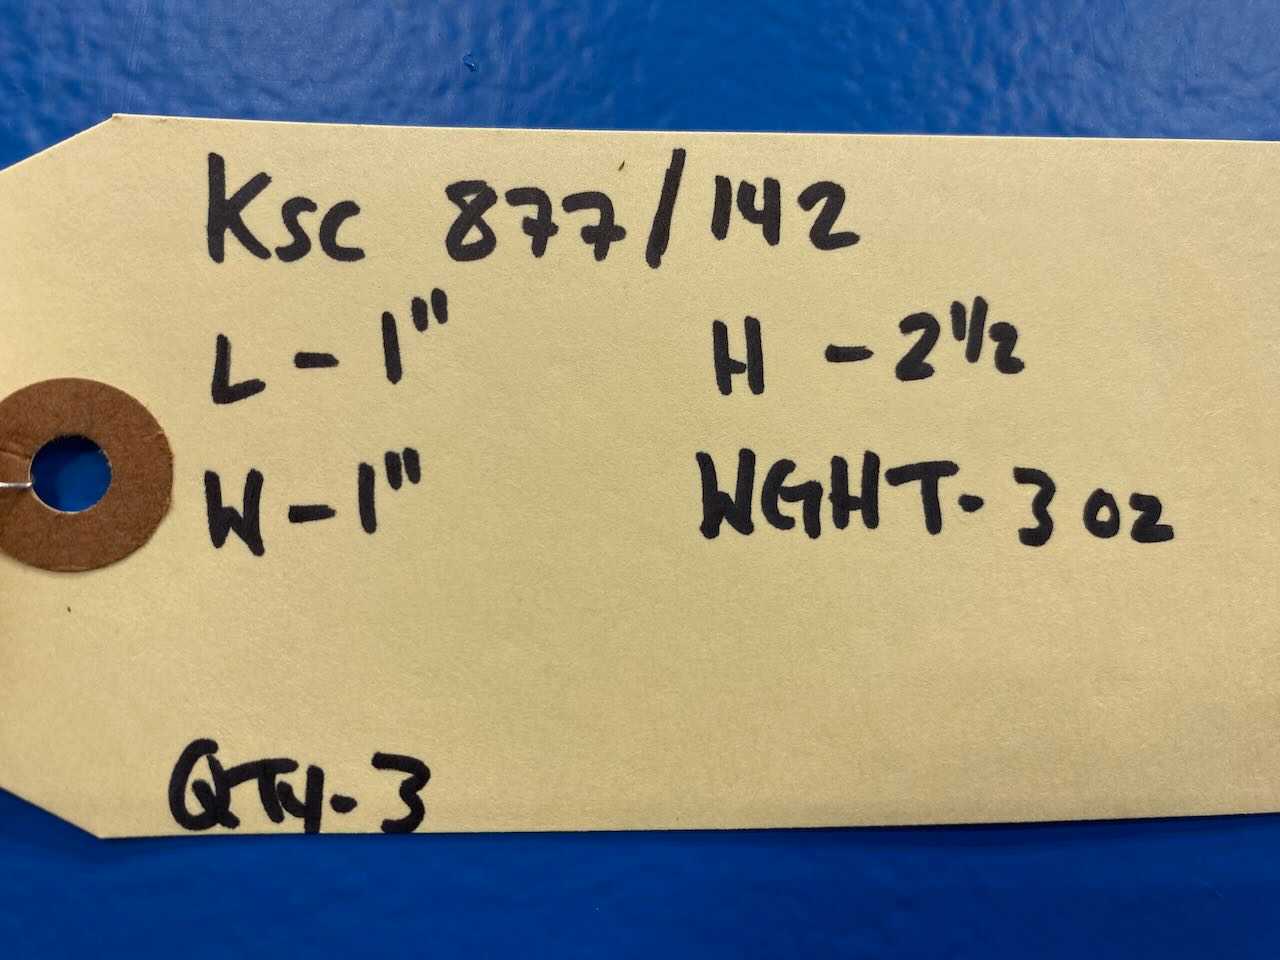 KSC 877/142
L - 1" H - 2 1/2
W - 1" WGHT - 3 oz
QTy - 3